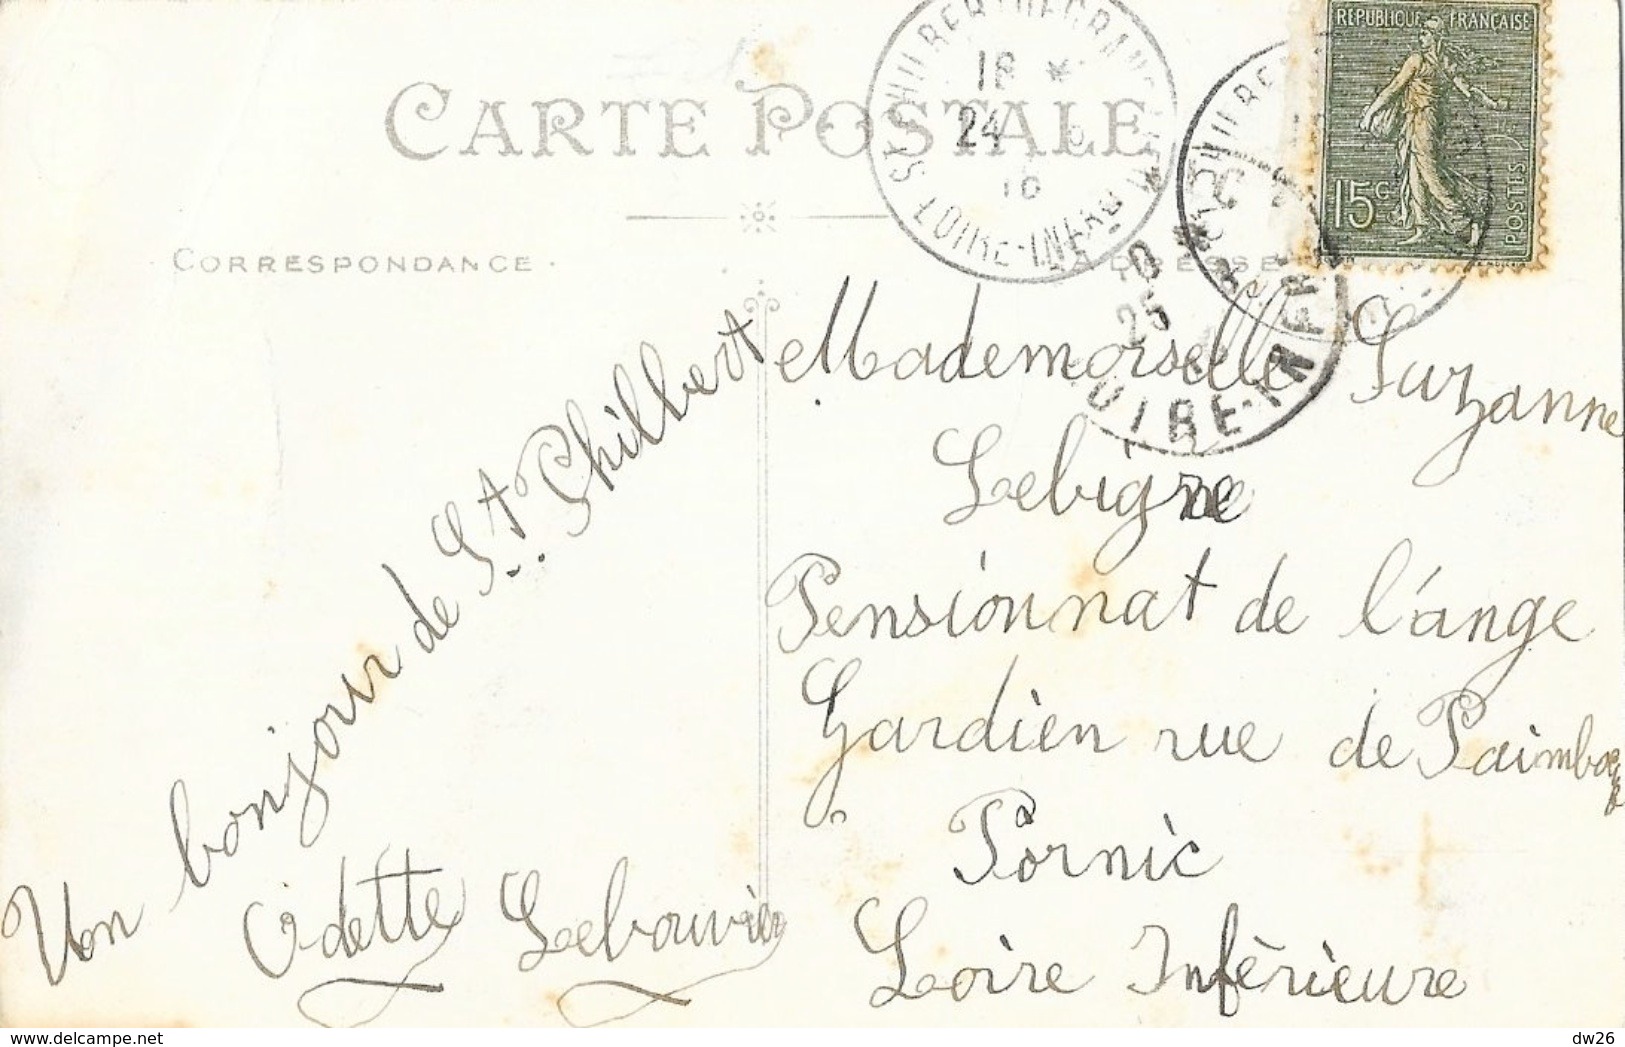 CARTE POSTALE
CORRESPONDANCE
ADRESSE
RÉPUBLIQUE FRANÇAISE
15c
POSTES
18 *
24
16
LOIRE-INFRE
25
LOIRE-INFRE
Un bonjour de St. Philbert
Odette Lebouvier
Mademoiselle Suzanne
Lebigre
Pensionnat de l'ange
Gardien rue de Paimboeuf
Pornic
Loire Inférieure
dw26